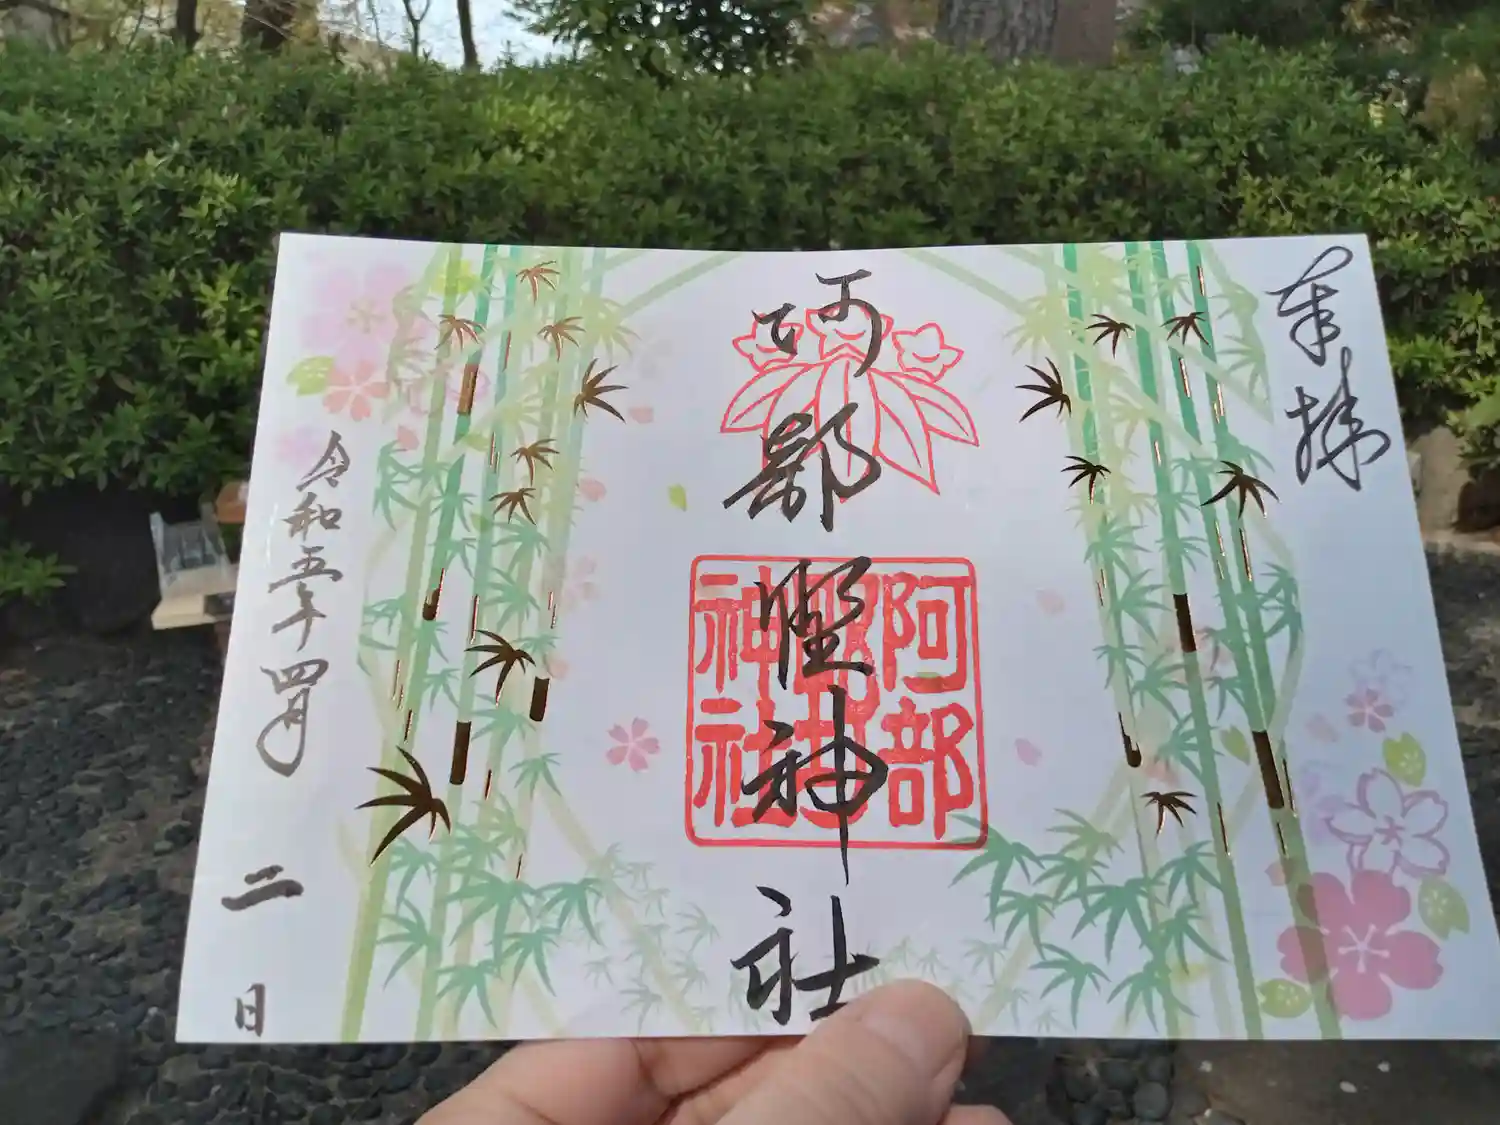 奉拝
阿部野神社
阿部
野
神社
令和五年四月
二日